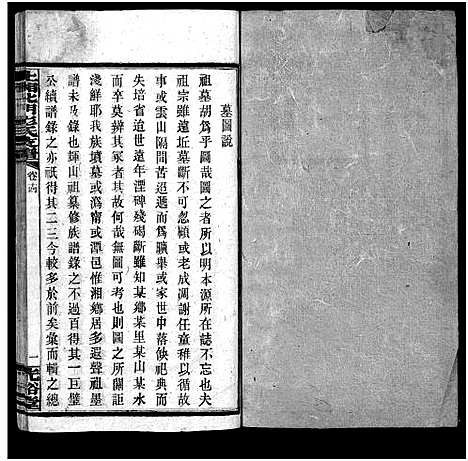 墓圖說
祖墓胡爲乎圖哉圖之者所以明本源所在誌不忘也夫
祖宗雖遠坵墓斷不可忽顧或老成凋謝任童稚以循故
事或雲山隔間苦迢遞而艱擧或家世中落俟祀典而
失培省迨世遠年湮碑殘碣斷雖知某鄉某里某山某水
而卒莫辨其冢者其故何哉無圖可考也則圖之所關詎
淺鮮耶我族墳墓或瀉甯或潭邑惟湘鄉居多遐聲祖墨
譜未及錄也煇山祖纂修族譜錄之不過百得其一巨璧
公續譜錄之亦祇得其二三今較多於前矣彙而輯之總
卷六
一
光裕堂